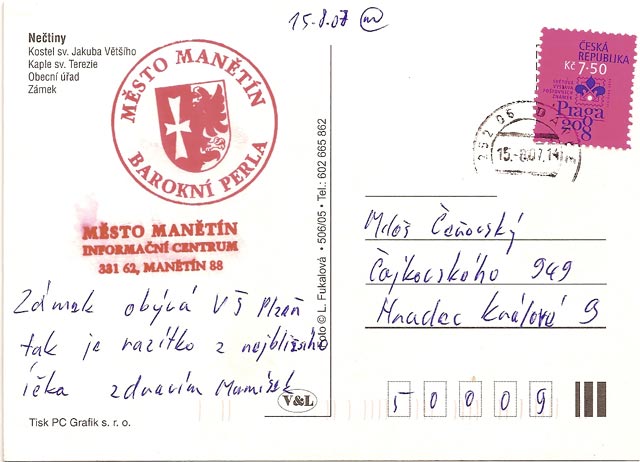 15.8.07
Nečtiny
Kostel sv. Jakuba Většího
Kaple sv. Terezie
Obecní úřad
Zámek
MĚSTO MANĚTÍN
BAROKNÍ PERLA
MĚSTO MANĚTÍN
INFORMAČNÍ CENTRUM
331 62, MANĚTÍN 88
Zámek obývá VŠ Plzeň
tak je razítko z nejbližšího
íčka zdravím
Tisk PC Grafik s. r. o.
Foto © L. Fukalová • 506/05 • Tel.: 602 665 862
V&L
ČESKÁ
REPUBLIKA
Kč 7·50
SVĚTOVÁ
VÝSTAVA
POŠTOVNÍCH
ZNÁMEK
Praga
2008
252 06
15.-8.07.14
Miloš Čeňovský
Čajkovského 949
Hradec Králové 9
50009